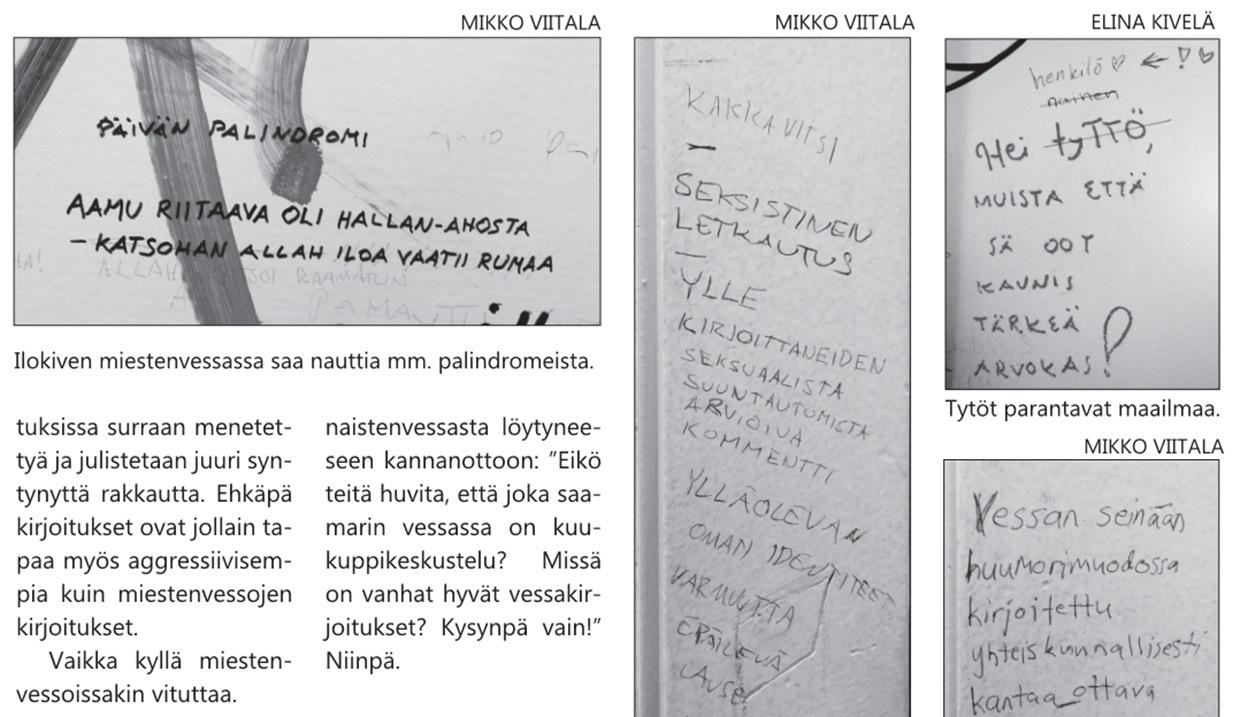 MIKKO VIITALA
PÄIVÄN PALINDROMI
AAMU RIITAAVA OLI HALLAN-AHOSTA
– KATSOHAN ALLAH ILOA VAATII RUMAA
HA!
ALLAH
Ilokiven miestenvessassa saa nauttia mm. palindromeista.
tuksissa surraan menetet-
tyä ja julistetaan juuri syn-
tynyttä rakkautta. Ehkäpä
kirjoitukset ovat jollain ta-
paa myös aggressiivisem-
pia kuin miestenvessojen
kirjoitukset.
Vaikka kyllä miesten-
vessoissakin vituttaa.
naistenvessasta löytynee-
seen kannanottoon: ”Eikö
teitä huvita, että joka saa-
marin vessassa on kuu-
kuppikeskustelu? Missä
on vanhat hyvät vessakir-
joitukset? Kysynpä vain!”
Niinpä.
MIKKO VIITALA
KAKKAVITSI
–
SEKSISTINEN
LETKAUTUS
–
YLLE
KIRJOITTANEIDEN
SEKSUAALISTA
SUUNTAUTUMISTA
ARVIOIVA
KOMMENTTI
YLLÄOLEVAN
OMAN IDENTITEET
VARMUUTTA
EPÄILEVÄ
LAUSE
ELINA KIVELÄ
henkilö ♡ ← ! ♡
nainen
Hei tyTTÖ,
MUISTA ETTÄ
SÄ OOT
KAUNIS
TÄRKEÄ
ARVOKAS!
Tytöt parantavat maailmaa.
MIKKO VIITALA
Vessan seinään
huumorimuodossa
kirjoitettu
yhteiskunnallisesti
kantaa ottava